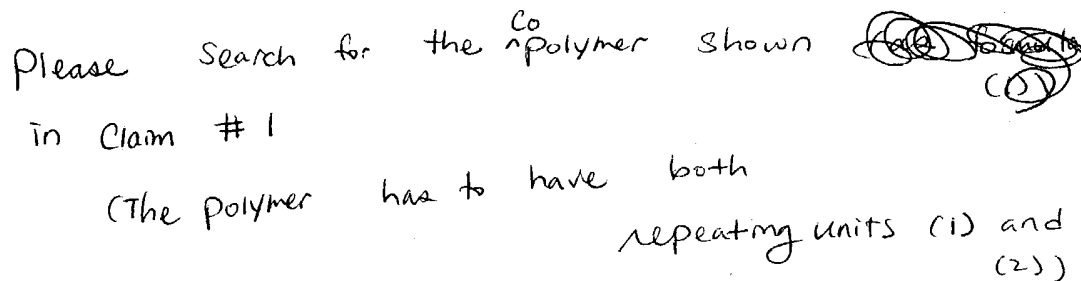 Please search for the copolymer shown
in Claim # 1
(The polymer has to have both
repeating units (1) and
(2))